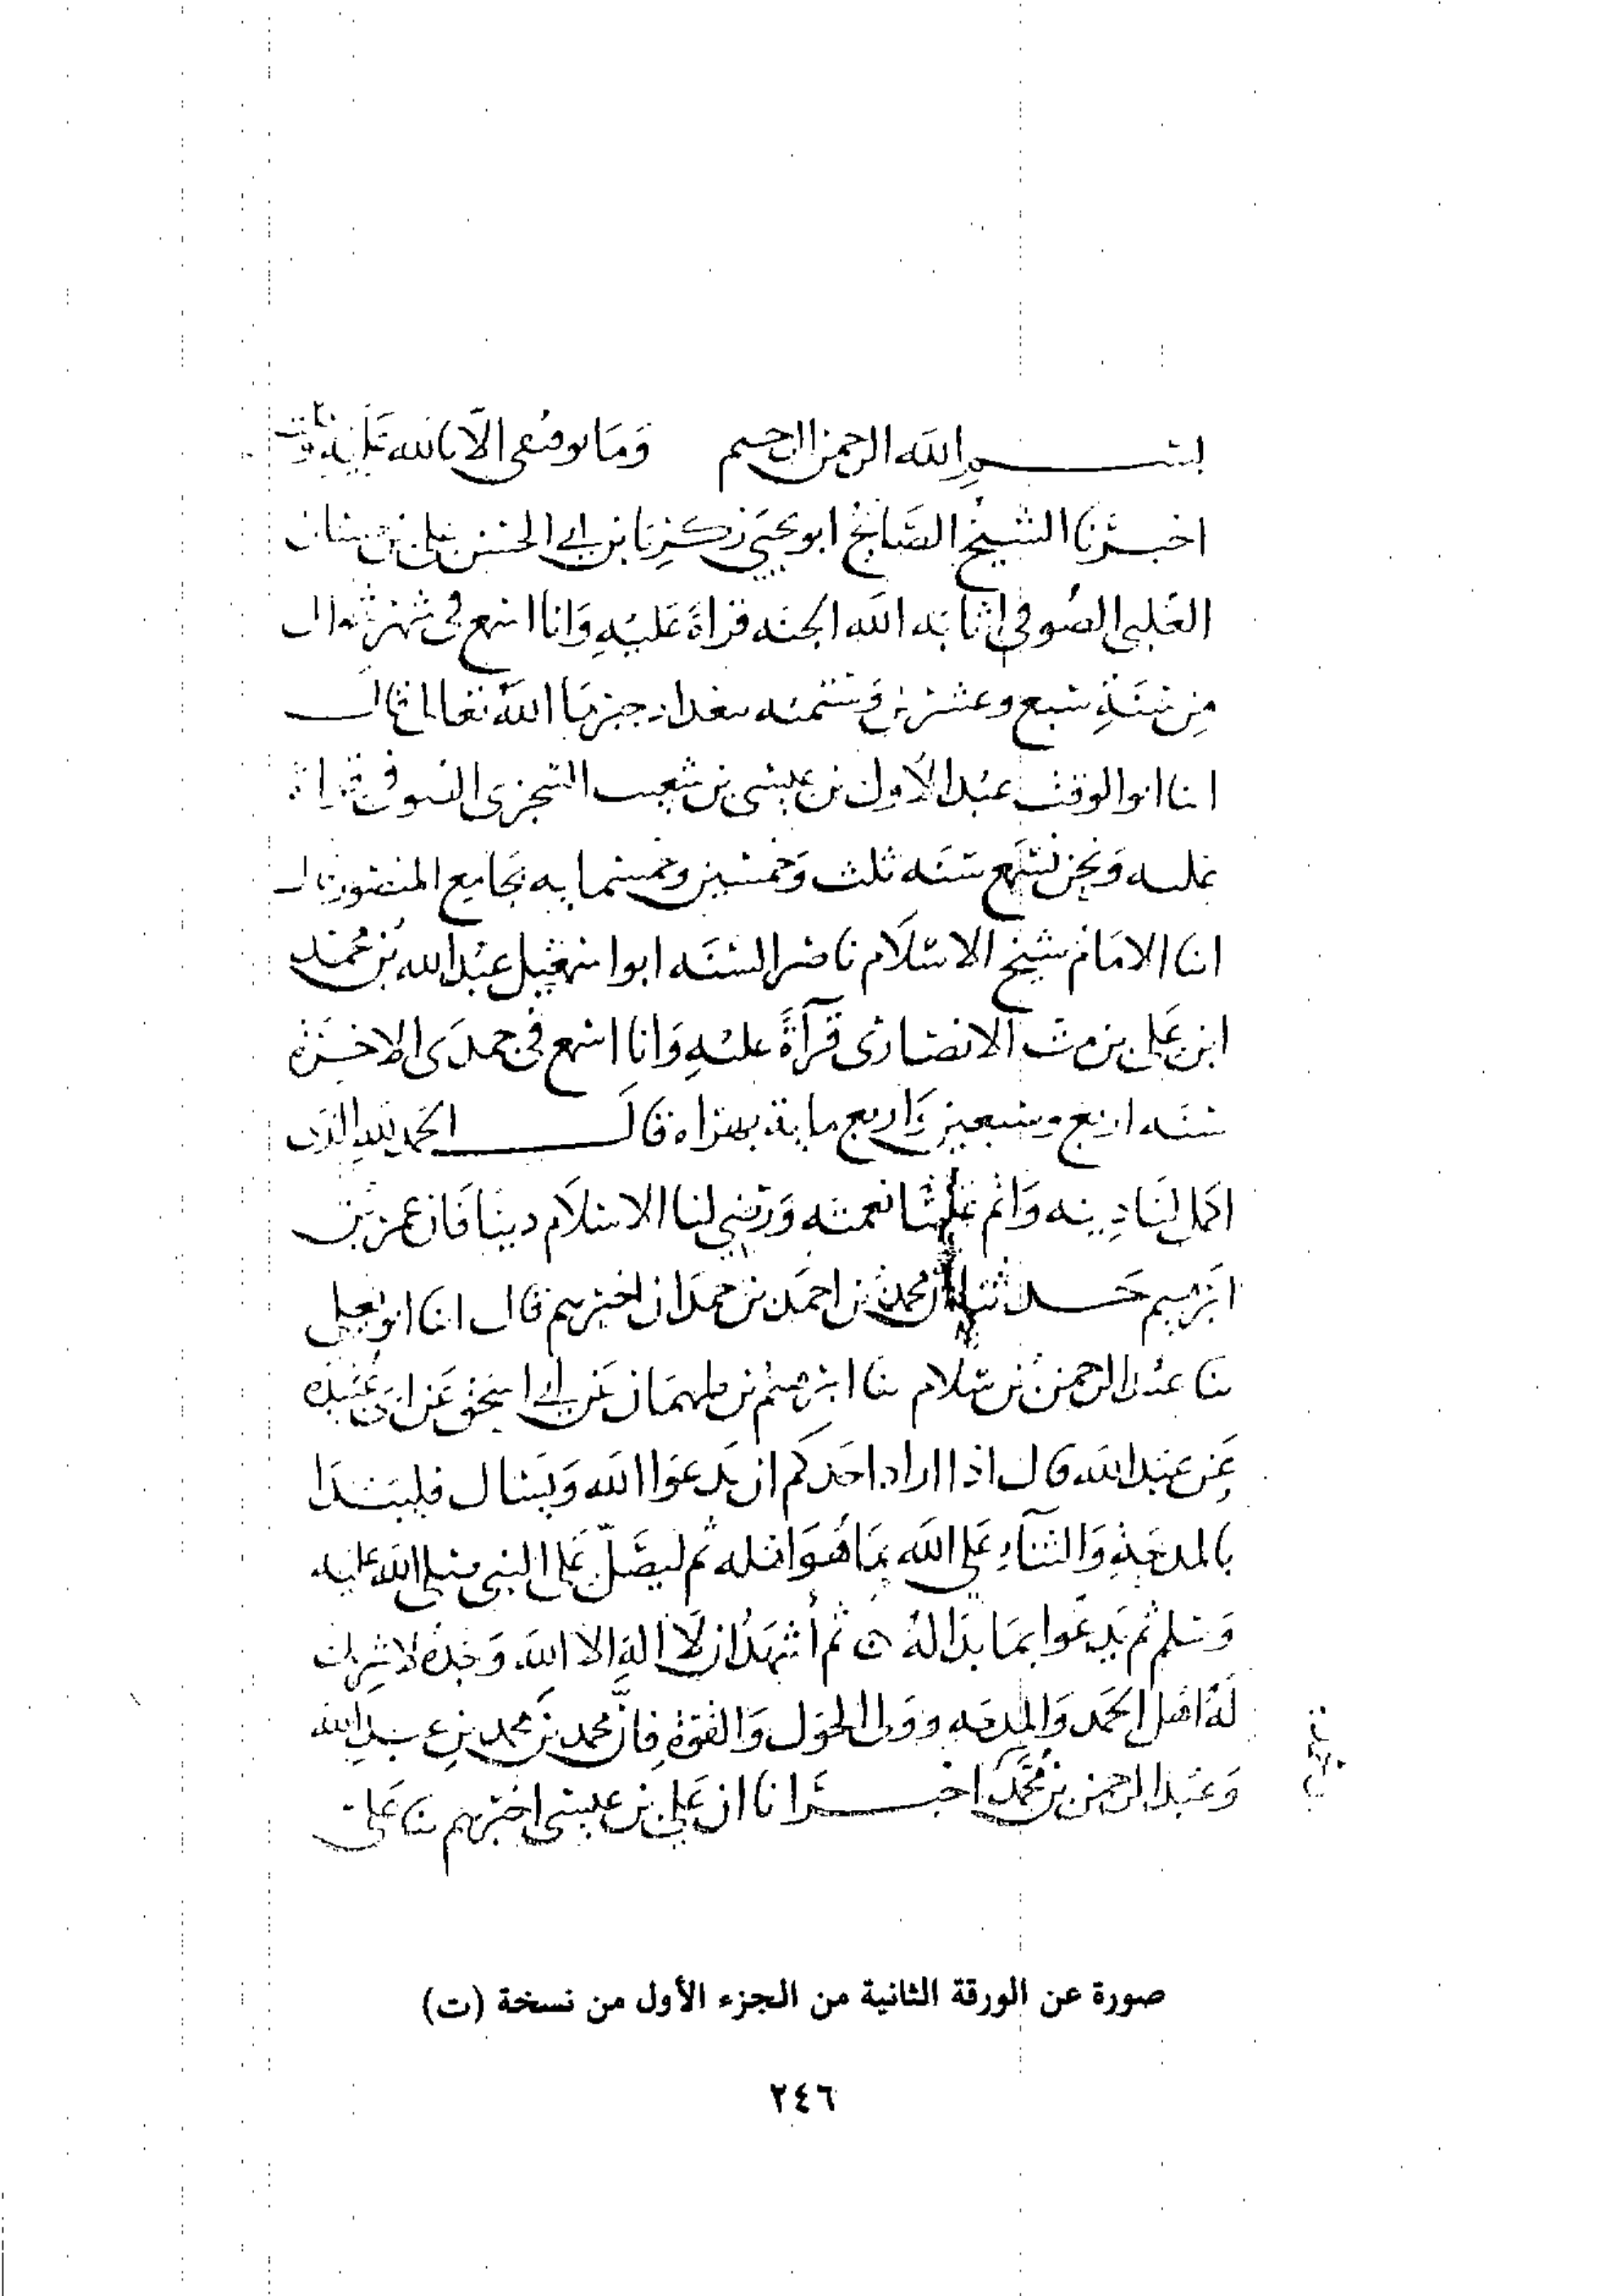 بسم الله الرحمن الرحيم وما توفيقي الا بالله عليه توكلت
اخبرنا الشيخ الصالح ابو يحيى زكريا بن ابي الحسن علي بن حسان
العلبي الصوفي اثابه الله الجنه قراةً عليهِ وانا اسمع في شهر شوال
من سنةِ سبع وعشرين وستمئه ببغداد جبرها الله تعالى قال
انا ابو الوقت عبد الاول بن عيسى بن شعيب السجزي الصوفي قراة
عليه ونحن نسمع سنه ثلث وخمسين وخمسمايه بجامع المنصور قال
انا الامام شيخ الاسلام ناصر السنه ابو اسمعيل عبد الله بن محمد
ابن علي بن مت الانصاري قرآةً عليهِ وانا اسمع في جمدى الاخرة
سنه اربع وسبعين واربع ماية بهراه قال الحمد لله الذي
اكمل لنا دينه واتم علينا نعمته ورضي لنا الاسلام دينا فان عمر بن
ابرهيم حدثنا ان محمد بن احمد بن حمدان اخبرهم قال انا ابو يعلى
نا عبد الرحمن بن سلام نا ابرهيم بن طهمان عن ابي اسحق عن ابي عبيده
عن عبد الله قال اذا اراد احدكم ان يدعوا الله ويسال فليبتدا
بالمدحةِ والثنآءِ على الله بما هو اهله ثم ليصلّ على النبي صلى الله عليه
وسلم ثم يدعوا بما بدا لهُ ثم أشهد ان لا اله الا الله وحده لا شريك
له اهل الحمد والمدحه وولي الحول والقوة فإنّ محمد بن محمد بن عبد الله
وعبد الرحمن بن محمد اخبرانا ان علي بن عيسى اخبرهم نا علي
صورة عن الورقة الثانية من الجزء الأول من نسخة (ت)
٢٤٦